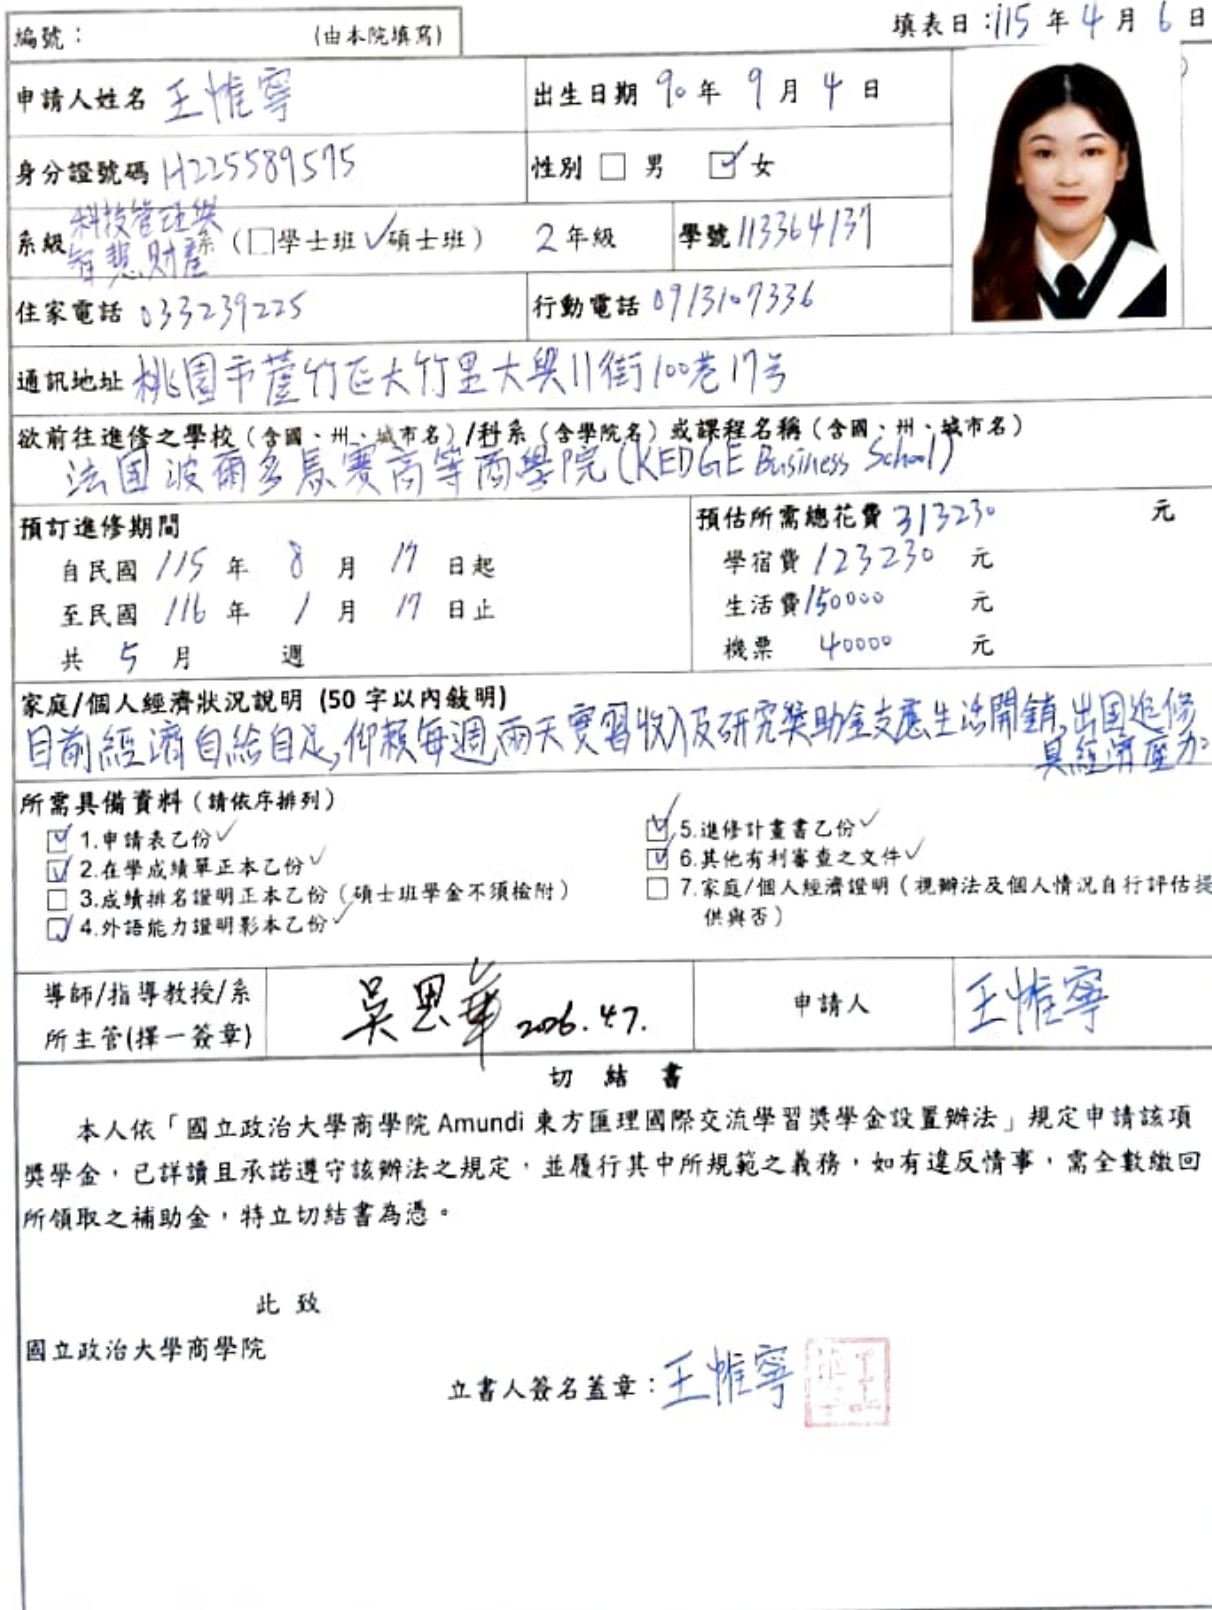 編號： (由本院填寫)
填表日：115 年 4 月 6 日
申請人姓名 王惟寧
出生日期 90 年 9 月 4 日
身分證號碼 H225589575
性別 □ 男 ☑ 女
系級 科技管理與智慧財產 系（□學士班 ✓碩士班） 2 年級
學號 113364137
住家電話 033239225
行動電話 0913107336
通訊地址 桃園市蘆竹區大竹里大興11街100巷17号
欲前往進修之學校（含國、州、城市名）/科系（含學院名）或課程名稱（含國、州、城市名）
法国波爾多馬賽高等商學院(KEDGE Business School)
預訂進修期間
自民國 115 年 8 月 17 日起
至民國 116 年 1 月 17 日止
共 5 月 週
預估所需總花費 313230 元
學宿費 123230 元
生活費 150000 元
機票 40000 元
家庭/個人經濟狀況說明 (50 字以內敍明)
目前經濟自給自足,仰賴每週兩天實習收入及研究獎助金支應生活開銷,出国進修
具經濟壓力
所需具備資料（請依序排列）
☑ 1.申請表乙份✓
☑ 2.在學成績單正本乙份✓
□ 3.成績排名證明正本乙份（碩士班學金不須檢附）
☑ 4.外語能力證明影本乙份✓
☑ 5.進修計畫書乙份✓
☑ 6.其他有利審查之文件✓
□ 7.家庭/個人經濟證明（視辦法及個人情況自行評估提
供與否）
導師/指導教授/系
所主管(擇一簽章)
吳思華 2026.4.7.
申請人
王惟寧
切 結 書
本人依「國立政治大學商學院 Amundi 東方匯理國際交流學習獎學金設置辦法」規定申請該項
獎學金，已詳讀且承諾遵守該辦法之規定，並履行其中所規範之義務，如有違反情事，需全數繳回
所領取之補助金，特立切結書為憑。
此 致
國立政治大學商學院
立書人簽名蓋章：王惟寧